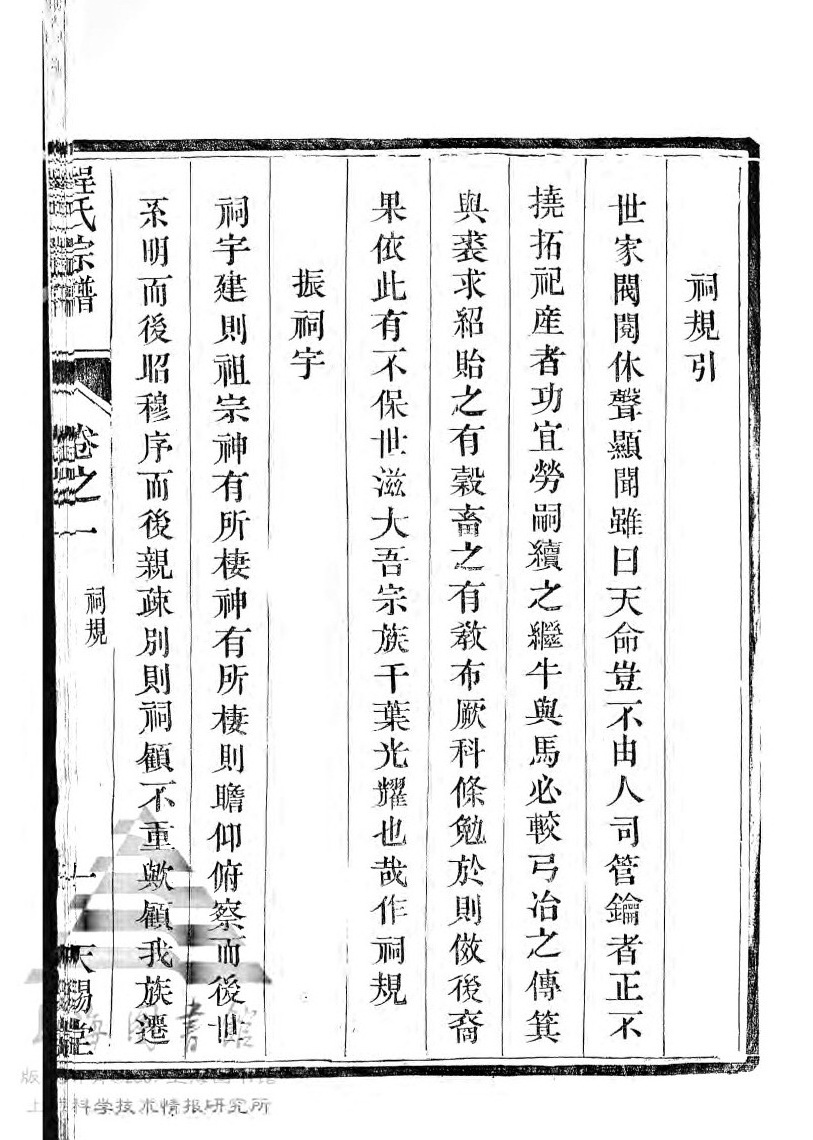 祠規引
世家閥閱休聲顯聞雖曰天命豈不由人司管鑰者正不
撓拓祀産者功宜勞嗣續之繼牛與馬必較弓冶之傳箕
與裘求紹貽之有穀畜之有教布厥科條勉於則傚後裔
果依此有不保世滋大吾宗族千葉光耀也哉作祠規
振祠宇
祠宇建則祖宗神有所棲神有所棲則瞻仰俯察而後世
系明而後昭穆序而後親疎別則祠顧不重歟顧我族遷
程氏宗譜
卷之一
祠規
一
天錫堂
上海圖書館
科学技术情报研究所